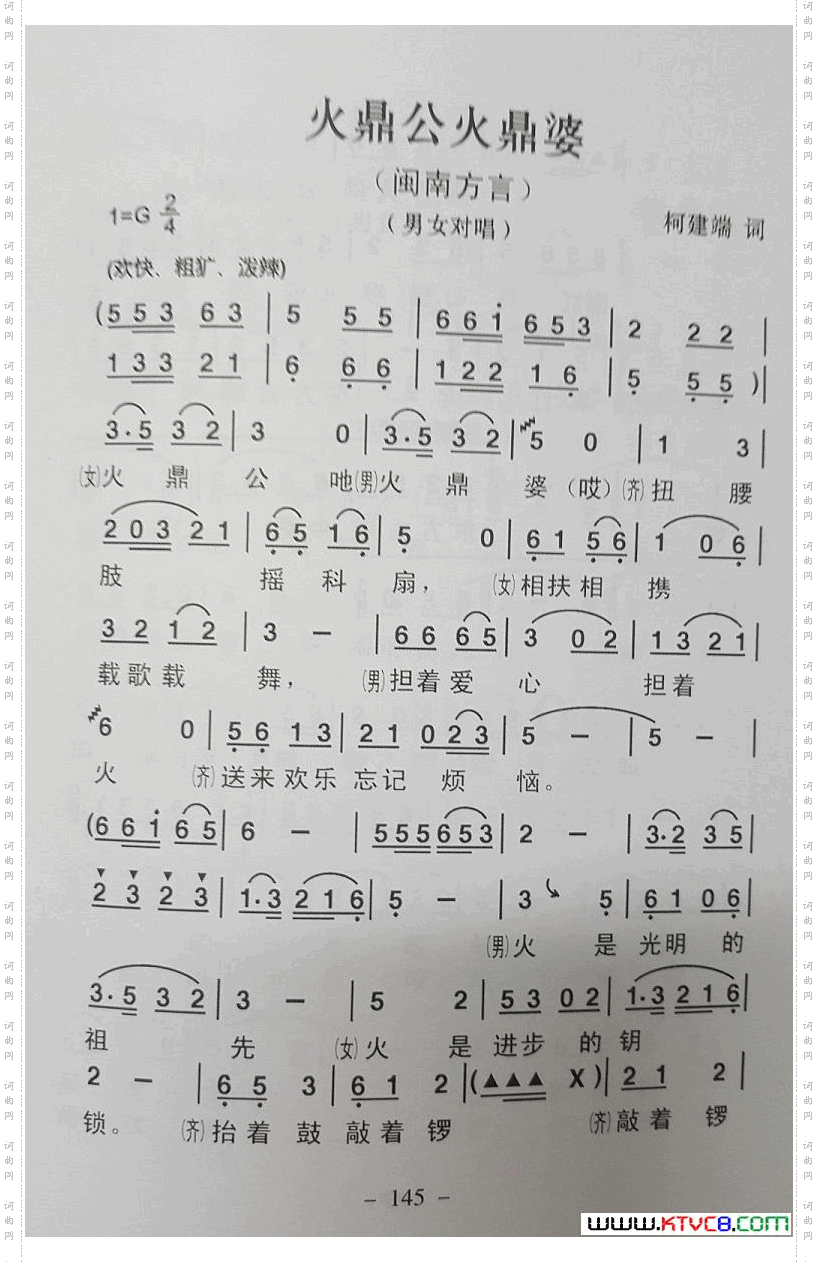 火鼎公火鼎婆
(闽南方言)
1=G 2/4
(男女对唱)
柯建端 词
(欢快、粗犷、泼辣)
(5 5 3 6 3 | 5 5 5 | 6 6 i 6 5 3 | 2 2 2 |
1 3 3 2 1 | 6 6 6 | 1 2 2 1 6 | 5 5 5 )|
3·5 3 2 | 3 0 | 3·5 3 2 | 5 0 | 1 3 |
(女)火 鼎 公 吔(男)火 鼎 婆 (哎)(齐)扭 腰
2 0 3 2 1 | 6 5 1 6 | 5 0 | 6 1 5 6 | 1 0 6 |
肢 摇 科 扇, (女)相扶相 携
3 2 1 2 | 3 – | 6 6 6 5 | 3 0 2 | 1 3 2 1 |
载歌载 舞, (男)担着爱 心 担着
6 0 | 5 6 1 3 | 2 1 0 2 3 | 5 – | 5 – |
火 (齐)送来欢乐 忘记 烦 恼。
(6 6 i 6 5 | 6 – | 5 5 5 6 5 3 | 2 – | 3·2 3 5 |
2 3 2 3 | 1·3 2 1 6 | 5 – | 3 5 | 6 1 0 6 |
(男)火 是 光明 的
3·5 3 2 | 3 – | 5 2 | 5 3 0 2 | 1·3 2 1 6 |
祖 先 (女)火 是 进步 的 钥
2 – | 6 5 3 | 6 1 2 |(▲▲▲ X )| 2 1 2 |
锁。 (齐)抬着 鼓 敲着 锣 (齐)敲着 锣
– 145 –
www.KTVC8.com
词曲网